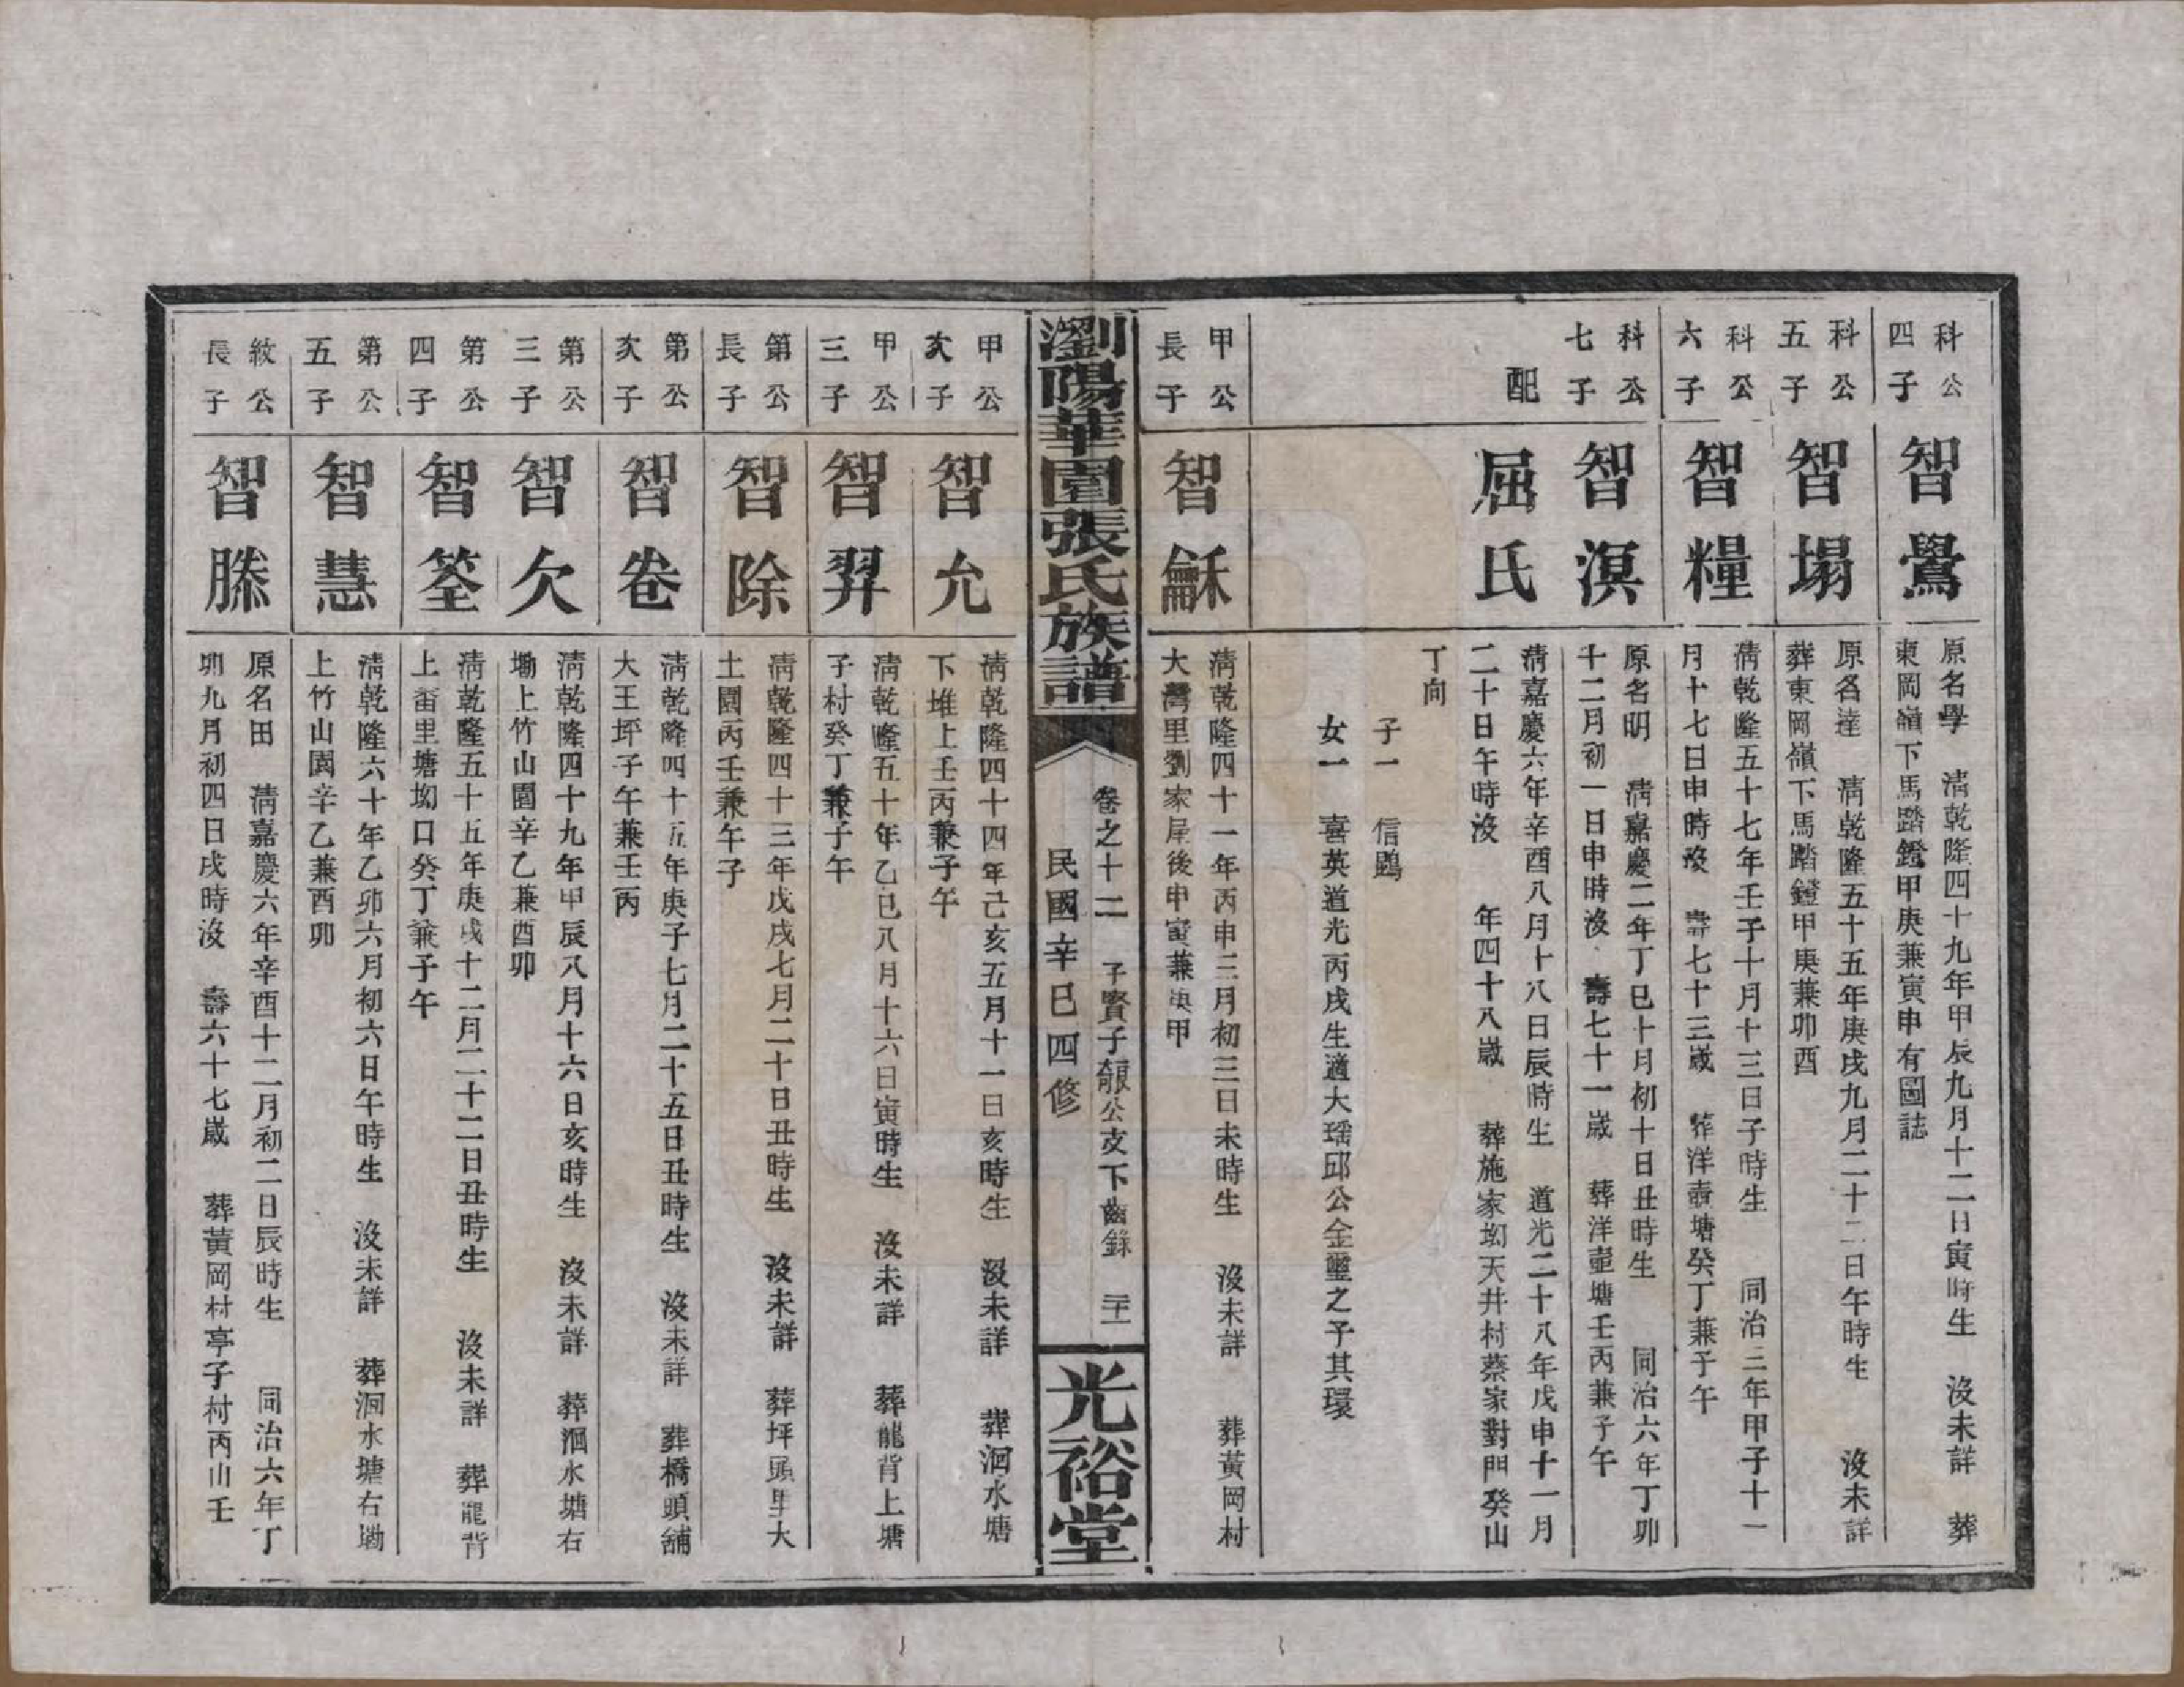 科公
四子
智鷽
原名學　清乾隆四十九年甲辰九月十二日寅時生　沒未詳　葬
東岡嶺下馬踏鐙甲庚兼寅申有圖誌
科公
五子
智塌
原名達　清乾隆五十五年庚戌九月二十二日午時生　沒未詳
葬東岡嶺下馬踏鐙甲庚兼卯酉
科公
六子
智糧
清乾隆五十七年壬子十月十三日子時生　同治三年甲子十一
月十七日申時沒　壽七十三歲　葬洋壼塘癸丁兼子午
科公
七子
智溟
原名明　清嘉慶二年丁巳十月初十日丑時生　同治六年丁卯
十二月初一日申時沒　壽七十一歲　葬洋壼塘壬丙兼子午
配
屈氏
清嘉慶六年辛酉八月十八日辰時生　道光二十八年戊申十一月
二十日午時沒　年四十八歲　葬施家坳天井村蔡家對門癸山
丁向
子一　信鷗
女一　喜英道光丙戌生適大瑶邱公金璽之子其環
甲公
長子
智龢
清乾隆四十一年丙申三月初三日未時生　沒未詳　葬黃岡村
大灣里劉家屋後申寅兼庚甲
瀏陽華園張氏族譜
卷之十二　子賢子服公支下齒錄　三十一
民國辛巳四修
光裕堂
甲公
次子
智允
清乾隆四十四年己亥五月十一日亥時生　沒未詳　葬洄水塘
下堆上壬丙兼子午
甲公
三子
智羿
清乾隆五十年乙巳八月十六日寅時生　沒未詳　葬龍背上塘
子村癸丁兼子午
第公
長子
智除
清乾隆四十三年戊戌七月二十日丑時生　沒未詳　葬坪頭里大
土園丙壬兼午子
第公
次子
智卷
清乾隆四十五年庚子七月二十五日丑時生　沒未詳　葬橋頭舖
大王坪子午兼壬丙
第公
三子
智欠
清乾隆四十九年甲辰八月十六日亥時生　沒未詳　葬洄水塘右
墈上竹山園辛乙兼酉卯
第公
四子
智筌
清乾隆五十五年庚戌十二月二十二日丑時生　沒未詳　葬龍背
上畲里塘坳口癸丁兼子午
第公
五子
智慧
清乾隆六十年乙卯六月初六日午時生　沒未詳　葬洄水塘右墈
上竹山園辛乙兼酉卯
紋公
長子
智滕
原名田　清嘉慶六年辛酉十二月初二日辰時生　同治六年丁
卯九月初四日戌時沒　壽六十七歲　葬黃岡村亭子村丙山壬